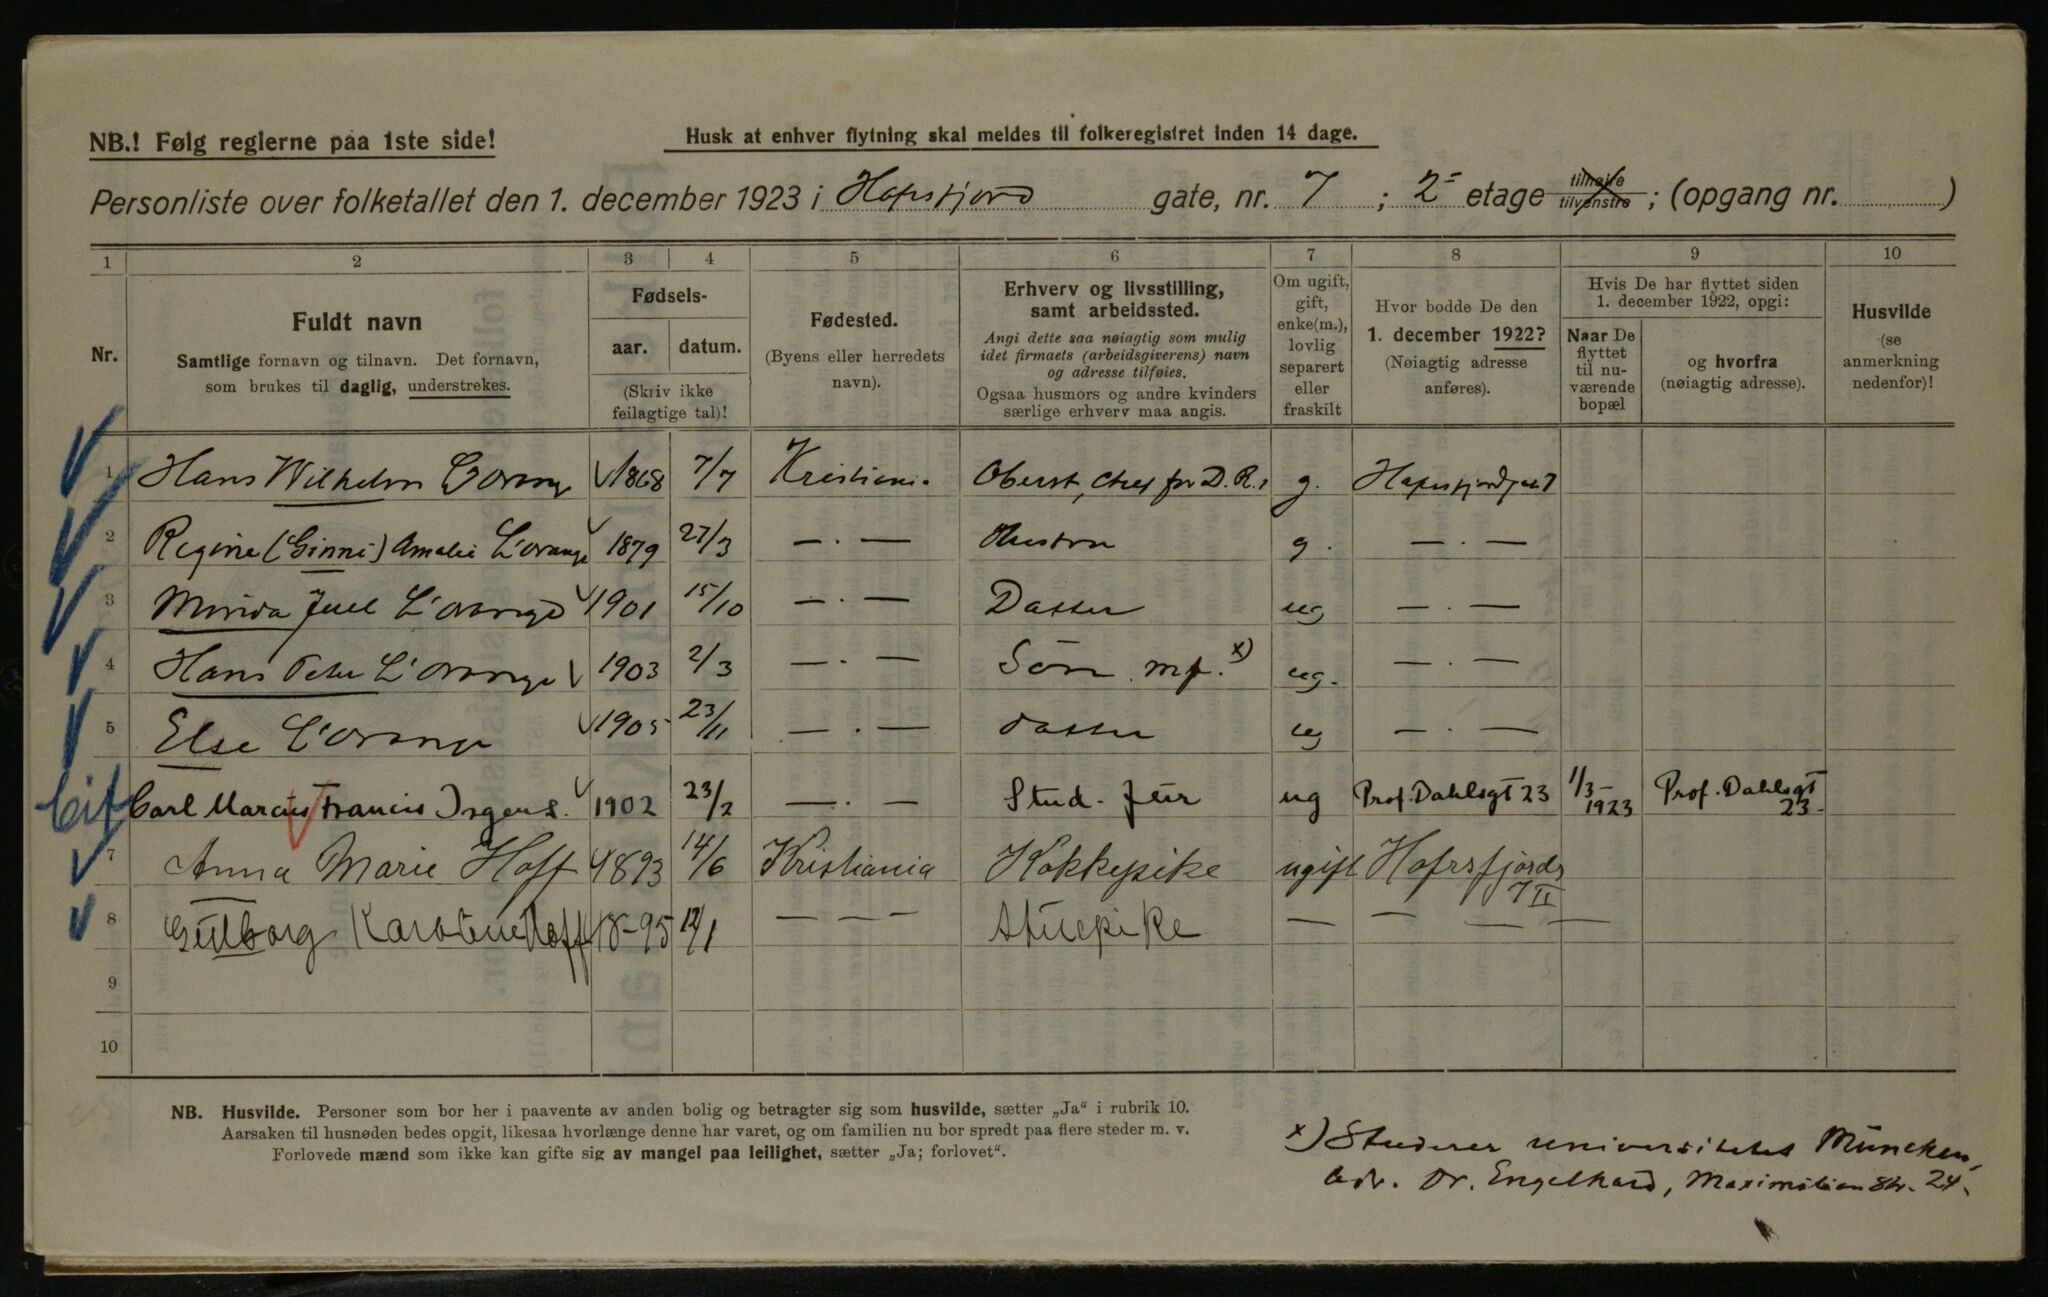 NB.! Følg reglerne paa 1ste side!
Husk at enhver flytning skal meldes til folkeregistret inden 14 dage.
Personliste over folketallet den 1. december 1923 i Hafrsfjord gate, nr. 7 ; 2 etage tilhøire tilvenstre ; (opgang nr. )
1 2 3 4 5 6 7 8 9 10
Nr.
Fuldt navn
Samtlige fornavn og tilnavn. Det fornavn,
som brukes til daglig, understrekes.
Fødsels-
aar. datum.
(Skriv ikke
feilagtige tal)!
Fødested.
(Byens eller herredets
navn).
Erhverv og livsstilling,
samt arbeidssted.
Angi dette saa nøiagtig som mulig
idet firmaets (arbeidsgiverens) navn
og adresse tilføies.
Ogsaa husmors og andre kvinders
særlige erhverv maa angis.
Om ugift,
gift,
enke(m.),
lovlig
separert
eller
fraskilt
Hvor bodde De den
1. december 1922?
(Nøiagtig adresse
anføres).
Hvis De har flyttet siden
1. december 1922, opgi:
Naar De
flyttet
til nu-
værende
bopæl
og hvorfra
(nøiagtig adresse).
Husvilde
(se
anmerkning
nedenfor)!
1 Hans Wilhelm L'orange 1868 7/7 Kristiania Oberst, chef for D.R. 1 g. Hafrsfjordgt 7
2 Regine (Ginni) Amalie L'orange 1879 27/3 — . — Hustru g. — . —
3 Juel L'orange 1901 15/10 — . — Datter ug — . —
4 Hans Peter L'orange 1903 2/3 — . — Søn mf. x) ug. — . —
5 Else L'orange 1905 23/11 — . — datter ug — . —
Carl Marcus Francis Irgens. 1902 23/2 — . — Stud. jur ug Prof. Dahlsgt 23 1/3-1923 Prof. Dahlsgt 23-
7 Anna Marie Hoff 1893 14/6 Kristiania Kokkepike ugift Hafrsfjords 7 II
8 Gulborg Karoline Hoff 18-95 12/1 — — — Stuepike — — — —
9
10
NB. Husvilde. Personer som bor her i paavente av anden bolig og betragter sig som husvilde, sætter „Ja“ i rubrik 10.
Aarsaken til husnøden bedes opgit, likesaa hvorlænge denne har varet, og om familien nu bor spredt paa flere steder m. v.
Forlovede mænd som ikke kan gifte sig av mangel paa leilighet, sætter „Ja; forlovet“.
x) Studerer universitetet München,
adr. Dr. Engelhard, Maximilian Str. 24.